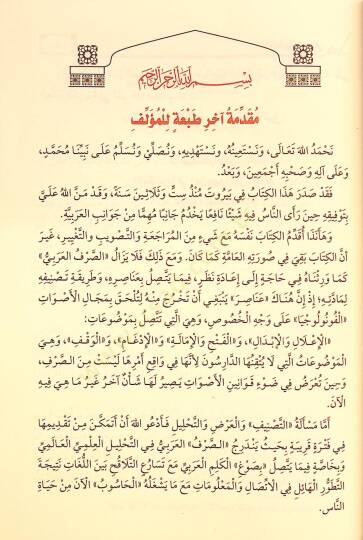 بِسْمِ اللَّهِ الرَّحْمَنِ الرَّحِيمِ
مُقَدِّمَةُ آخِرِ طَبْعَةٍ لِلْمُؤَلِّفِ
نَحْمَدُ اللهَ تَعَالَى، وَنَسْتَعِينُهُ، وَنَسْتَهْدِيهِ، وَنُصَلِّي وَنُسَلِّمُ عَلَى نَبِيِّنَا مُحَمَّدٍ،
وَعَلَى آلِهِ وَصَحْبِهِ أَجْمَعِينَ، وَبَعْدُ.
فَقَدْ صَدَرَ هَذَا الكِتَابُ فِي بَيْرُوتَ مُنْذُ سِتٍّ وَثَلَاثِينَ سَنَةً، وَقَدْ مَنَّ اللهُ عَلَيَّ
بِتَوْفِيقِهِ حِينَ رَأَى النَّاسُ فِيهِ شَيْئًا نَافِعًا يَخْدُمُ جَانِبًا مُهِمًّا مِنْ جَوَانِبِ العَرَبِيَّةِ.
وَهَأَنَذَا أُقَدِّمُ الكِتَابَ نَفْسَهُ مَعَ شَيْءٍ مِنَ المُرَاجَعَةِ وَالتَّصْوِيبِ وَالتَّغْيِيرِ، غَيْرَ
أَنَّ الكِتَابَ بَقِيَ فِي صُورَتِهِ العَامَّةِ كَمَا كَانَ. وَمَعَ ذَلِكَ فَلَا يَزَالُ «الصَّرْفُ العَرَبِيُّ»
كَمَا وَرِثْنَاهُ فِي حَاجَةٍ إِلَى إِعَادَةِ نَظَرٍ، فِيمَا يَتَّصِلُ بِعَنَاصِرِهِ، وَطَرِيقَةِ تَصْنِيفِهِ
لِمَادَّتِهِ؛ إِذْ إِنَّ هُنَاكَ «عَنَاصِرَ» يَنْبَغِي أَنْ تَخْرُجَ مِنْهُ لِتُلْحَقَ بِمَجَالِ الأَصْوَاتِ
«الفُونُولُوجْيَا» عَلَى وَجْهِ الخُصُوصِ، وَهِيَ الَّتِي تَتَّصِلُ بِمَوْضُوعَاتِ:
«الإِعْلَالِ وَالإِبْدَالِ»، وَ«الفَتْحِ وَالإِمَالَةِ» وَ«الإِدْغَامِ»، وَ«الوَقْفِ»، وَهِيَ
المَوْضُوعَاتُ الَّتِي لَا يُتْقِنُهَا الدَّارِسُونَ لِأَنَّهَا فِي وَاقِعِ أَمْرِهَا لَيْسَتْ مِنَ الصَّرْفِ،
وَحِينَ تُعْرَضُ فِي ضَوْءِ قَوَانِينِ الأَصْوَاتِ يَصِيرُ لَهَا شَأْنٌ آخَرُ غَيْرُ مَا هِيَ فِيهِ
الآنَ.
أَمَّا مَسْأَلَةُ «التَّصْنِيفِ» وَالعَرْضِ وَالتَّحْلِيلِ فَأَدْعُو اللهَ أَنْ أَتَمَكَّنَ مِنْ تَقْدِيمِهَا
فِي فَتْرَةٍ قَرِيبَةٍ بِحَيْثُ يَنْدَرِجُ «الصَّرْفُ» العَرَبِيُّ فِي التَّحْلِيلِ العِلْمِيِّ العَالَمِيِّ
وَبِخَاصَّةٍ فِيمَا يَتَّصِلُ «بِصَوْغِ» الكَلِمِ العَرَبِيِّ مَعَ تَسَارُعِ التَّلَاقُحِ بَيْنَ اللُّغَاتِ نَتِيجَةَ
التَّطَوُّرِ الهَائِلِ فِي الاتِّصَالِ وَالمَعْلُومَاتِ مَعَ مَا يَشْغَلُهُ «الحَاسُوبُ» الآنَ مِنْ حَيَاةِ
النَّاسِ.